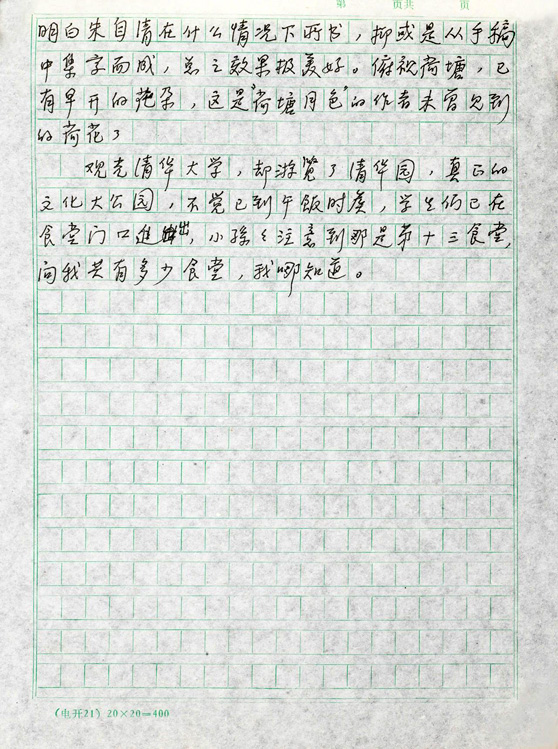 第 页共 页
明白朱自清在什么情况下所书，抑或是从手稿
中集字而成，总之效果极美好。俯视荷塘，已
有早开的花朵，这是“荷塘月色”的作者未曾见到
的荷花了
观光清华大学，却游览了清华园，真正的
文化大公园，不觉已到午饭时度，学生们已在
食堂门口进出，小孙々注意到那是第十三食堂，
问我共有多少食堂，我哪知道。
(电开21) 20×20=400